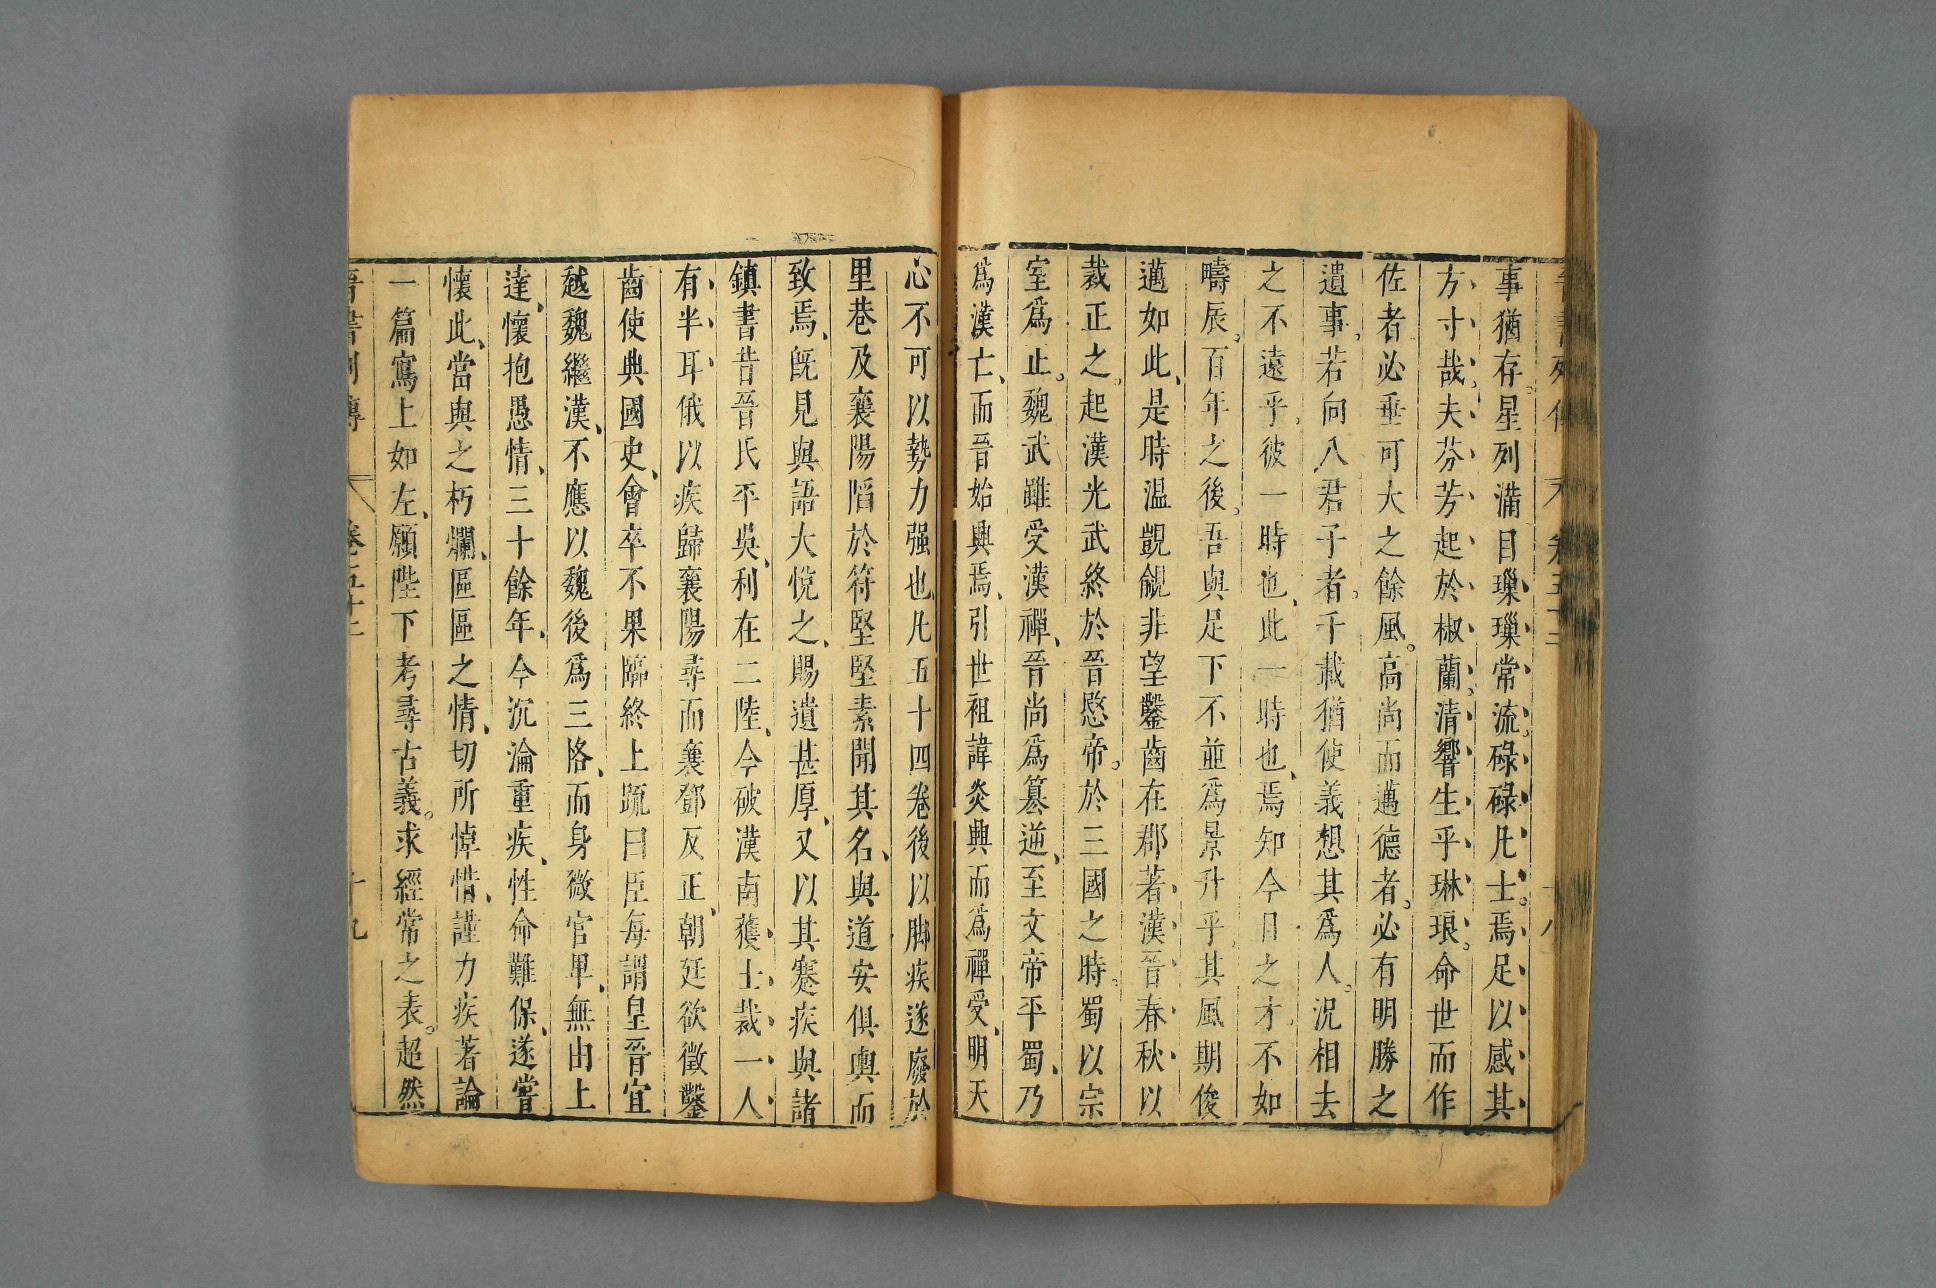 事猶存。星列滿目璅璅常流。碌碌凡士。焉足以感其
方寸哉。夫芬芳起於椒蘭。清響生乎琳琅。命世而作
佐者必垂可大之餘風。高尚而邁德者。必有明勝之
遺事。若向八君子者。千載猶使義想其爲人。況相去
之不遠乎。彼一時也、此一時也、焉知今日之才不如
疇辰。百年之後。吾與足下不並爲景升乎。其風期俊
邁如此、是時溫覬覦非望鑿齒在郡著漢晉春秋以
裁正之。起漢光武終於晉愍帝。於三國之時。蜀以宗
室爲止。魏武雖受漢禪、晉尚爲篡逆、至文帝平蜀、乃
爲漢亡、而晉始興焉、引世祖諱炎興而爲禪受、明天
心不可以勢力强也、凡五十四卷後以脚疾遂廢於
里巷及襄陽陷於符堅堅素聞其名、與道安俱輿而
致焉、旣見與語大悅之、賜遺甚厚、又以其蹇疾與諸
鎮書昔晉氏平吳、利在二陸、今破漢南、獲士裁一人
有半耳俄以疾歸襄陽尋而襄鄧反正、朝廷欲徵鑿
齒使典國史、會卒不果臨終上疏曰臣每謂皇晉宜
越魏繼漢、不應以魏後爲三恪、而身微官卑、無由上
達、懷抱愚情、三十餘年、今沉淪重疾、性命難保、遂嘗
懷此、當與之朽爛、區區之情、切所悼惜、謹力疾著論
一篇寫上如左、願陛下考尋古義。求經常之表。超然
晉書列傳 卷五十二 十九